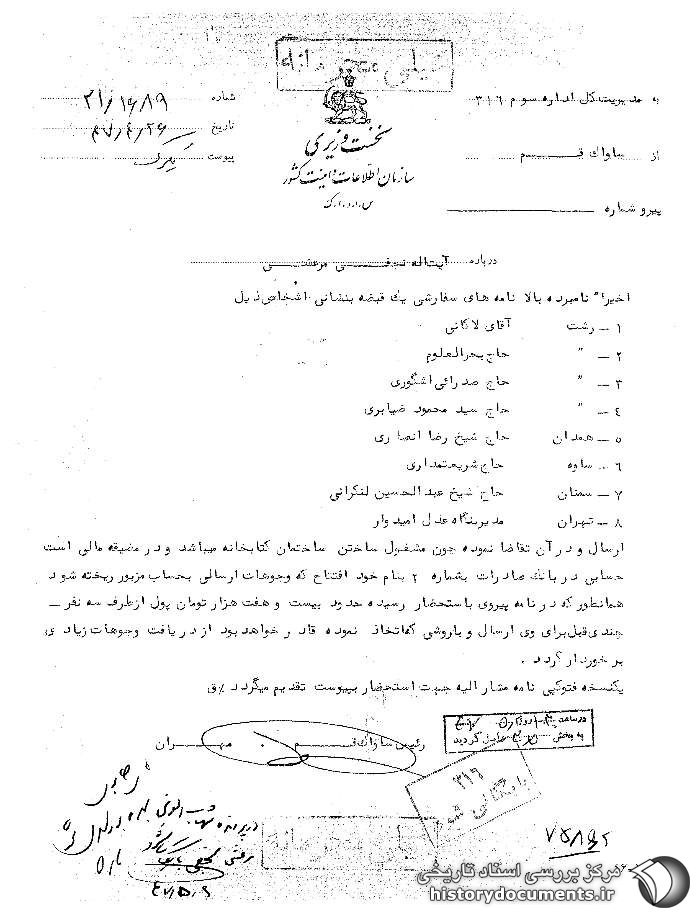 خیلی محرمانه
به مدیریت کل اداره سوم ۳۱۶
شماره ۲۱/۱۶۸۹
از ساواك قـــم
تاریخ ۴۷/۴/۲۶
پیوست
پیرو شماره
نخست وزیری
سازمان اطلاعات و امنیت کشور
س.ا.و.ا.ک
درباره آیت اله نجفـــی مرعشـــی
اخیرا" نامبرده بالا نامه های سفارشی یك قبضه بنشانی اشخاص ذیل
۱ ــ رشت آقای لاکانی
۲ ــ " حاج بحرالعلوم
۳ ــ " حاج صدرائی اشگوری
٤ ــ " حاج سید محمود ضیابری
۵ ــ همدان حاج شیخ رضا انصاری
۶ ــ ساوه حاج شریعتمداری
۷ ــ سمنان حاج شیخ عبدالحسین لنکرانی
۸ ــ تهران مدیر بنگاه عدل امیدوار
ارسال و در آن تقاضا نموده چون مشغول ساختن ساختمان کتابخانه میباشد و در مضیقه مالی است
حسابی در بانك صادرات بشماره ۲ بنام خود افتتاح که وجوهات ارسالی بحساب مزبور ریخته شود
همانطور که در نامه پیروی باستحضار رسیده حدود بیست و هفت هزار تومان پول از طرف سه نفر ــ
چندی قبل برای وی ارسال و با روشی که اتخاذ نموده قادر خواهد بود از دریافت وجوهات زیادی
بر خوردار گردد .
یکنسخه فتوکپی نامه مشارالیه جهت استحضار بپیوست تقدیم میگردد /ق
رئیس ساواك قـــم . مهـــران
در ساعت روز
به بخش تحویل گردید
۳۱۶
بایگانی شود
خیلی محرمانه
۷۵۸۶۲
مرکز بررسی اسناد تاریخی
historydocuments.ir